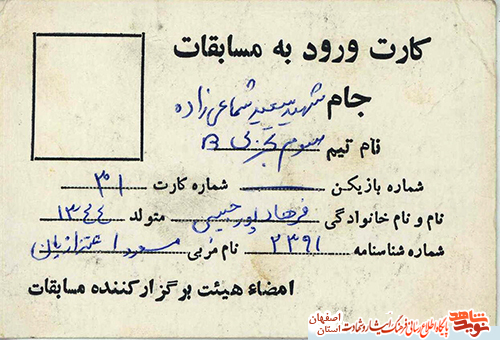 کارت ورود به مسابقات
جام شهید سعید شماعی زاده
نام تیم سوم تجربی B
شماره بازیکن شماره کارت ۳۰۱
نام و نام خانوادگی فرهاد پورحسینی متولد ۱۳۴۴
شماره شناسنامه ۲۳۹۱ نام مربی مسعود
امضاء هیئت برگزارکننده مسابقات
نوید شاهد
پایگاه اطلاع رسانی فرهنگ ایثار و شهادت
اصفهان
استان